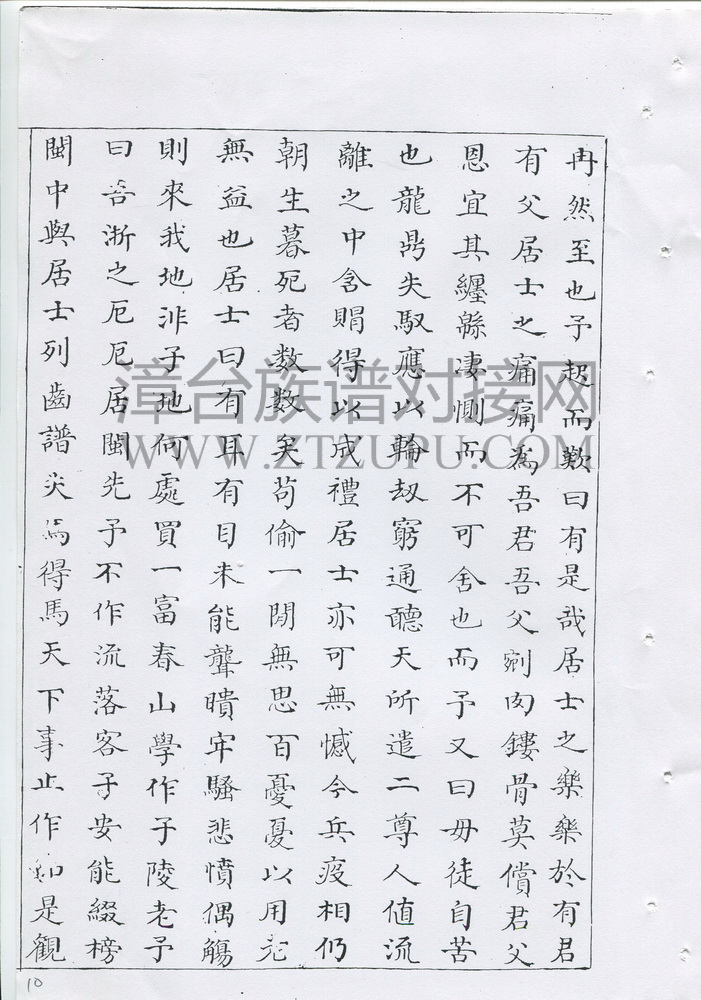 冉然至也予起而歎曰有是哉居士之樂樂於有君
有父居士之痛痛為吾君吾父剜肉鏤骨莫償君父
恩宜其纏緜凄惻而不可舍也而予又曰毋徒自苦
也龍鼎失馭應以輪劫窮通聽天所遣二尊人值流
離之中含賵得以成禮居士亦可無憾今兵疫相仍
朝生暮死者数数矣苟偷一閒無思百憂憂以用老
無益也居士曰有耳有目未能聾瞶牢騷悲憤偶觸
則來我地非子地何處買一富春山學作子陵老予
曰吾浙之厄厄居閩先予不作流落客子安能綴榜
閩中與居士列齒譜炎焉得馬天下事止作如是觀
漳台族谱对接网
WWW.ZTZUPU.COM
10